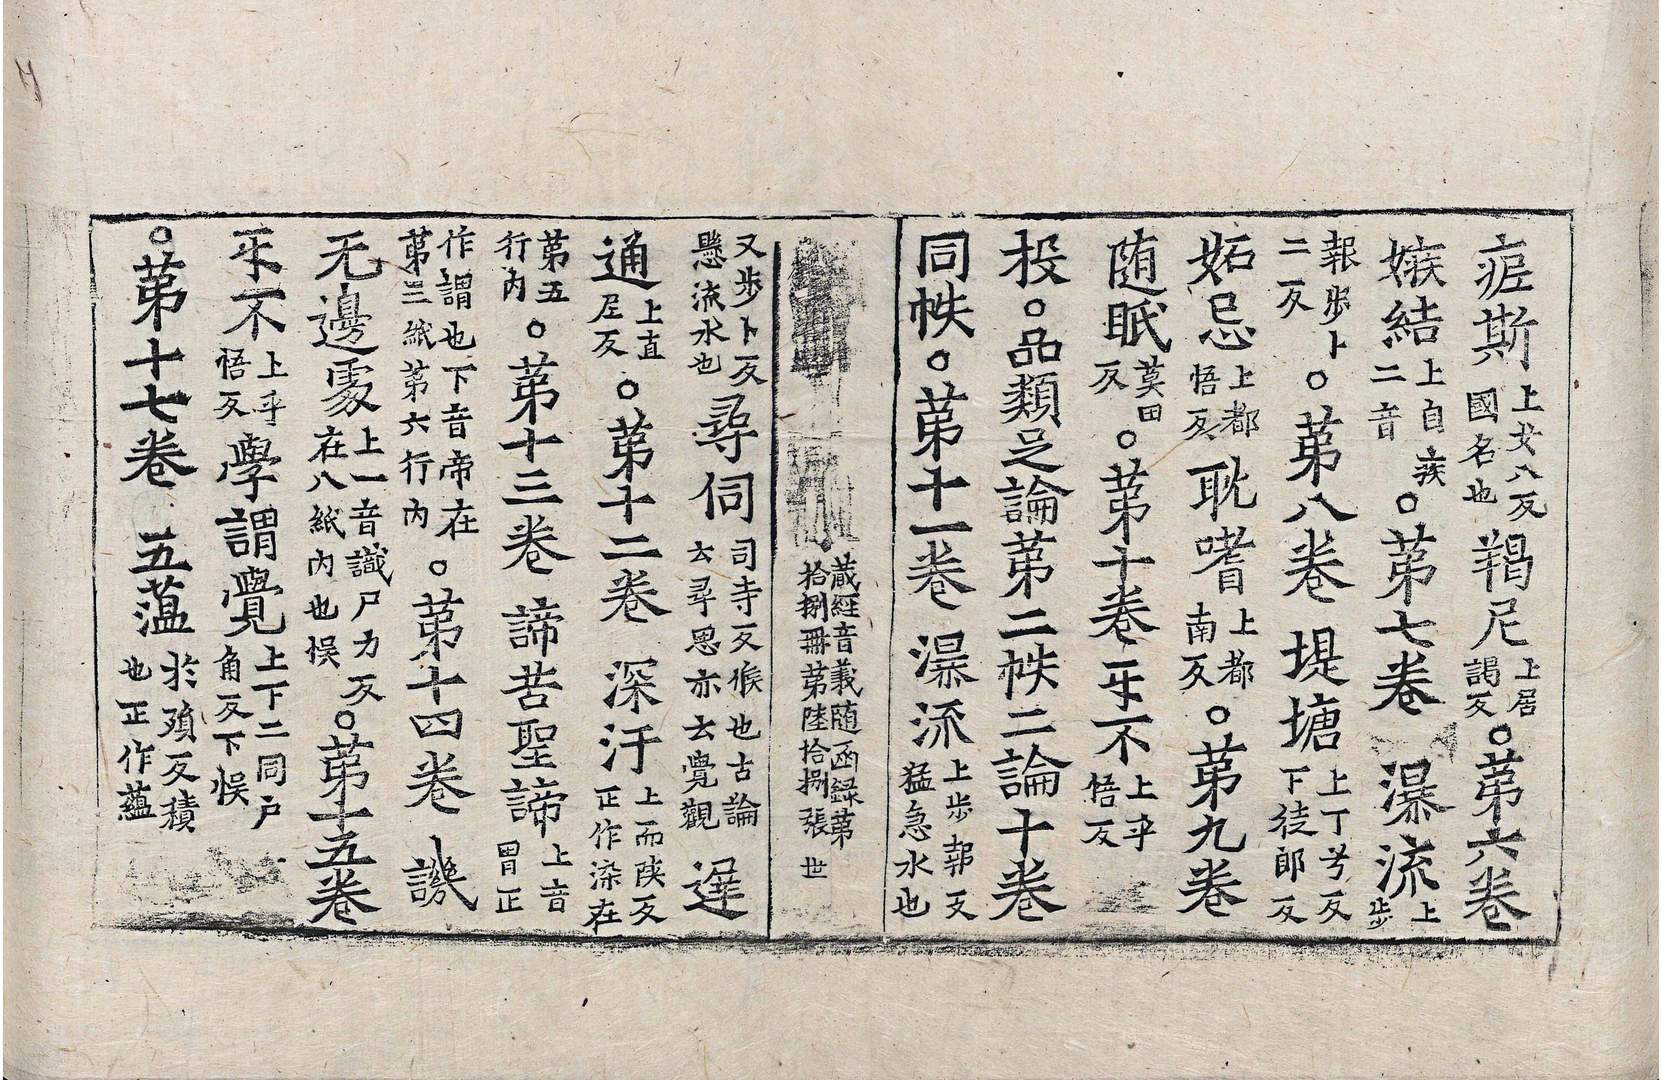 痆斯上女八反國名也羯尼上居謁反○第六卷
嫉結上自疾二音○第七卷瀑流上步
報步卜二反○第八卷堤塘上丁兮反下徒郎反
妬忌上都悟反耽嗜上都南反○第九卷
随眠莫田反○第十卷㸦不上乎悟反
投○品類足論第二帙二論十卷
同帙○第十一卷瀑流上步報反猛急水也
蔵経音義随函録第拾捌冊第陸拾捌張 世
又步卜反懸流水也尋伺司寺反候也古論云尋思亦云覺觀遲
通上直尼反○第十二卷深汙上而陝反正作染在
第五行内○第十三卷諦苦聖諦上音胃正
作謂也下音帝在第三紙第六行内○第十四卷譏
无邊䖏上一音識尸力反在八紙内也悮○第十五卷
㸦不上乎悟反學謂覺上下二同户角反下悮
○第十七卷五薀於殞反積也正作蘊